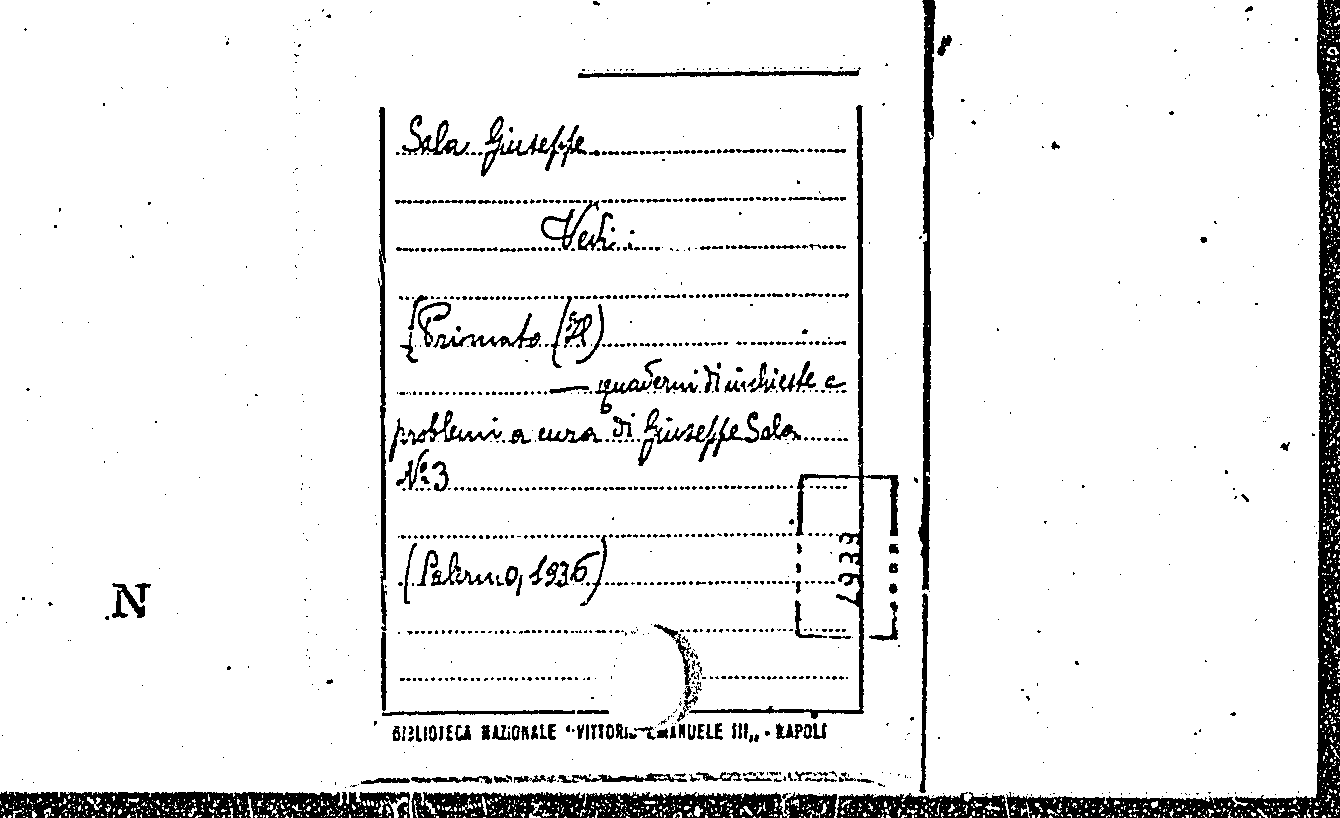 Sala Giuseppe
Vedi:
[Primato (Il)
— quaderni di inchieste e
problemi a cura di Giuseppe Sala
N.º 3
(Palermo, 1936)
N
BIBLIOTECA NAZIONALE "VITTORIO EMANUELE III„ - NAPOLI